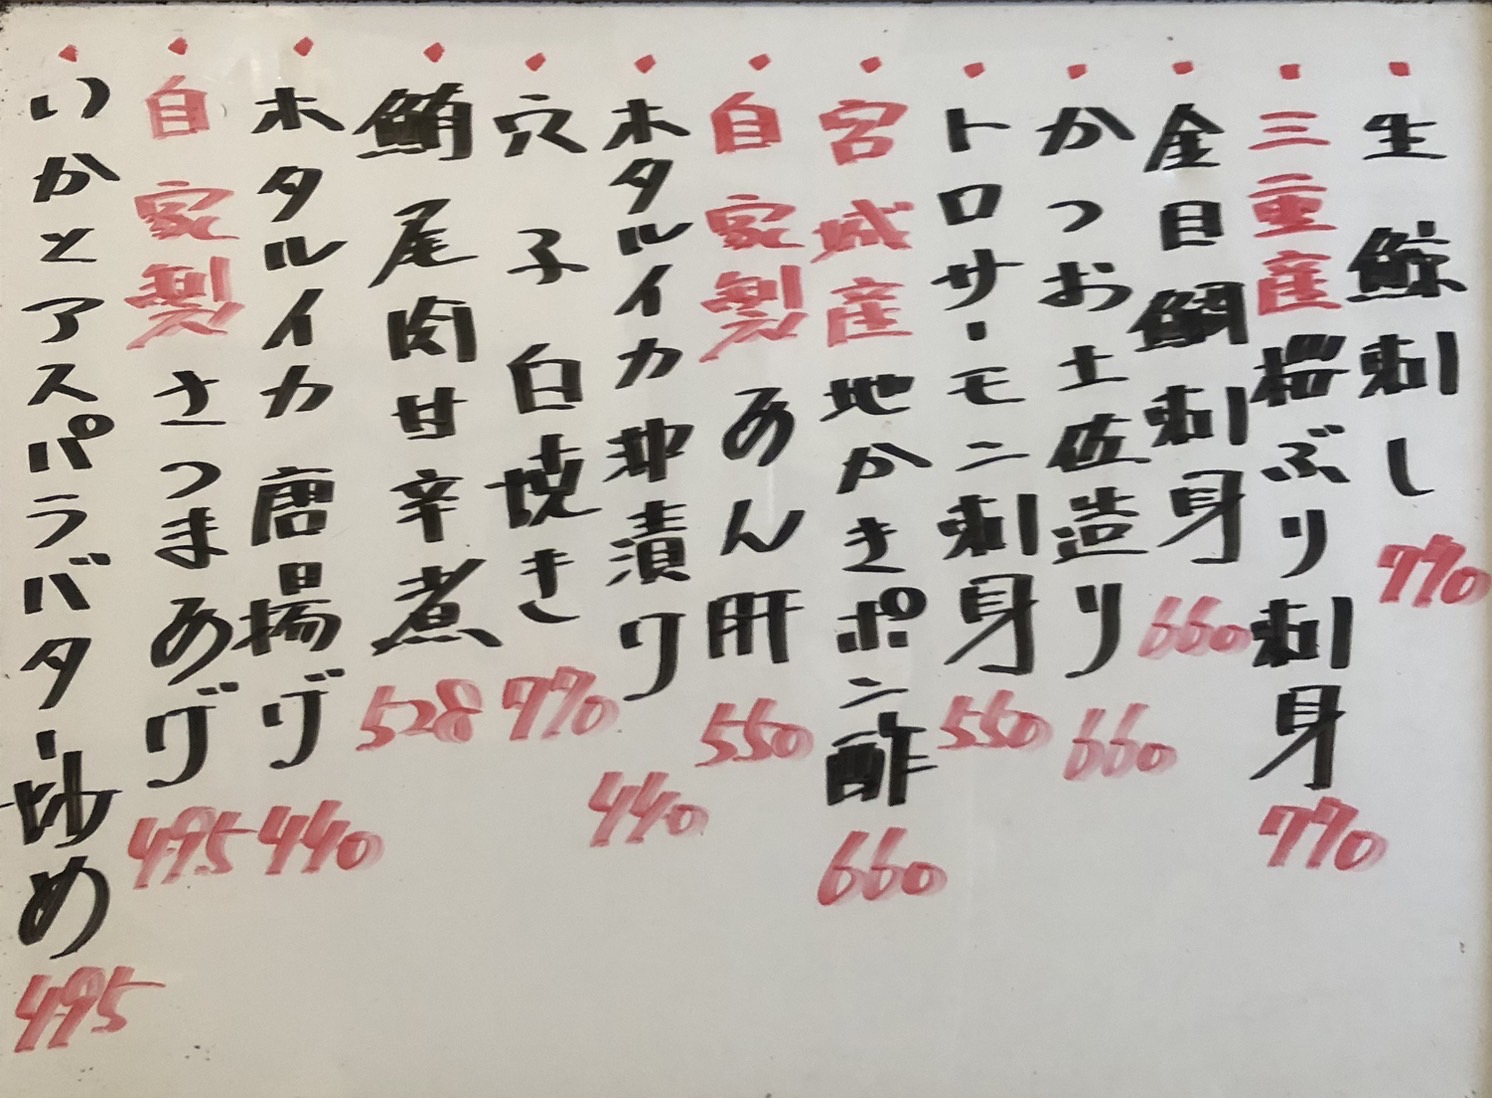 ・生鯨刺し 770
・三重産桜ぶり刺身 770
・金目鯛刺身 660
・かつお土佐造り 660
・トロサーモン刺身 550
・宮城産地かきポン酢 660
・自家製あん肝 550
・ホタルイカ沖漬け 440
・穴子白焼き 770
・鮪尾肉甘辛煮 528
・ホタルイカ唐揚げ 440
・自家製さつまあげ 495
・いかとアスパラバター炒め 495